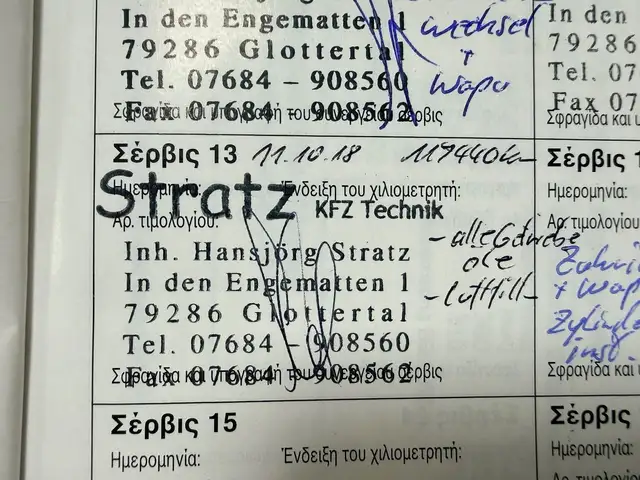 In den Engematten 1
79286 Glottertal
Tel. 07684 – 908560
Fax 07684 - 908562
Σφραγίδα και υπογραφή του συνεργείου σέρβις
wechsel
+
Wapu
In den
79286
Tel. 07
Fax 07
Σφραγίδα και υ
Σέρβις 13 11.10.18 119440km
Ημερομηνία: Ένδειξη του χιλιομετρητή:
Stratz KFZ Technik
Αρ. τιμολογίου:
Inh. Hansjörg Stratz
In den Engematten 1
79286 Glottertal
Tel. 07684 – 908560
Fax 07684 - 908562
Σφραγίδα και υπογραφή του συνεργείου σέρβις
- alle Getriebe
öle
- luftfilt
Σέρβις 1
Ημερομηνία:
Αρ. τιμολογίου:
Zahnri
+ Wapu
inst.
Σφραγίδα και
Σέρβις 15
Ημερομηνία: Ένδειξη του χιλιομετρητή:
Σέρβις
Ημερομηνία:
Αρ. τιμολογίου: